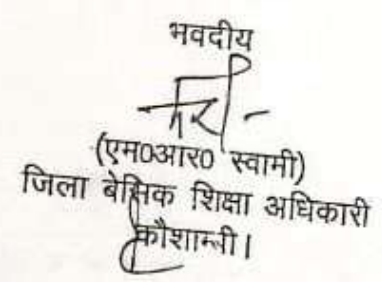 भवदीय
(एम0आर0 स्वामी)
जिला बेसिक शिक्षा अधिकारी
कौशाम्बी।